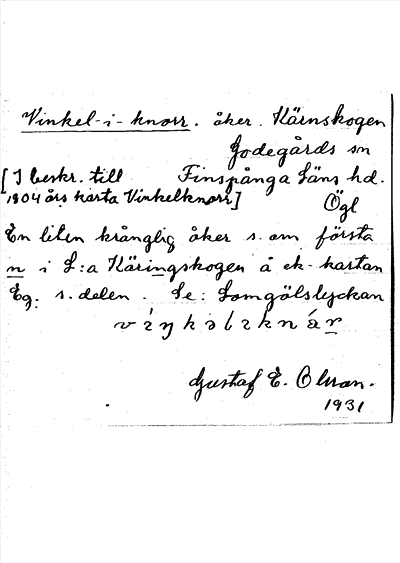 Vinkel-i-knorr. åker. Kärnskogen
Godegårds sn
[I beskr. till Finspånga Läns hd.
1804 års karta Vinkelknorr] Ögl
En liten krånglig åker s. om första
n i L:a Käringskogen å ek-kartan
Eg. s. delen. Se: Lomgölslyckan
Gustaf E. Olsson.
1931